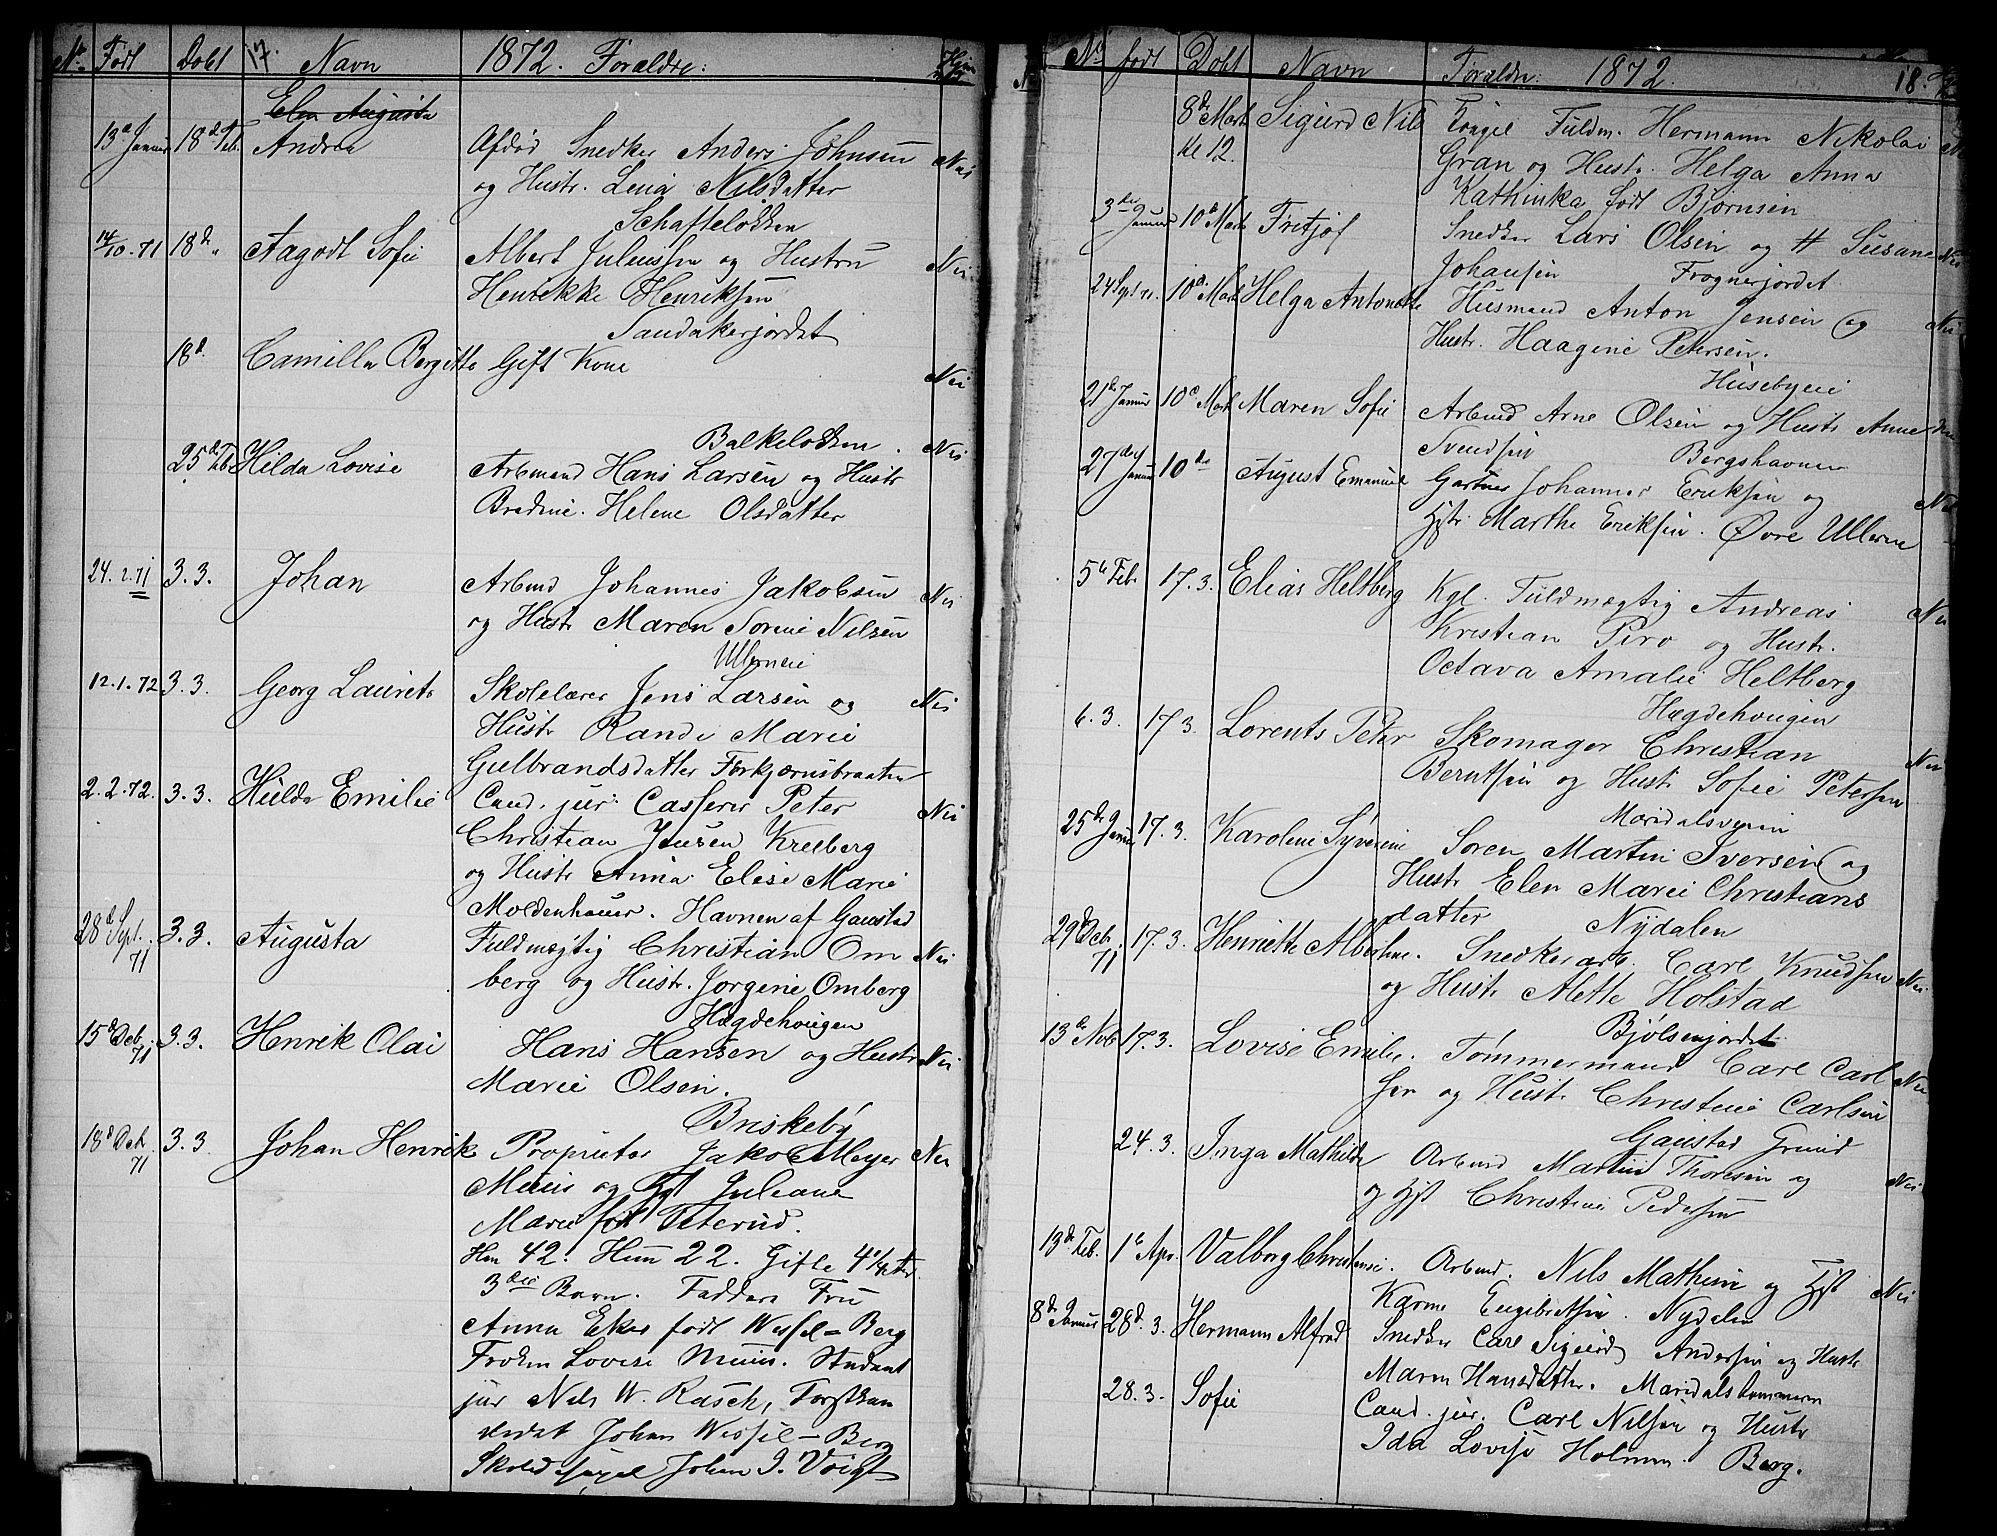 No Født Døbt 17. Navn 1872. Forældre:
Elen Augusta
13d Januar 18d Feb. Andrea Afdød Snedker Anders Johnsen Nei
og Hustr. Lena Nilsdatter
Schafteløkken
14/10.71 18d " Aagodt Sofie Albert Juliussen og Hustru Nei
Henrikke Henriksen
Sandakerjordet
18d. Camilla Bergitte Gift Kone Nei
Balkeløkken.
25d Feb Hilda Lovise Arbmand Hans Larsen og Hustr Nei
Bredine. Helene Olsdatter
24.2.71 3.3. Johan Arbmd Johannes Jakobsen Nei
og Hustr Maren Sorine Nilsen
Ullernei
12.1.72 3.3. Georg Laurets Skolelærer Jens Larsen og Nei
Hustr Randi Marie
Gulbrandsdatter
2.2.72. 3.3. Hilda Emilie Cand. jur. Casserer Peter Nei
Christian Jensen Kreeberg
og Hustr Anna Elise Marie
Moldenhauer. Havnen af Gaustad
28d Sept. 71 3.3. Augusta Fuldmægtig Christian Om Nei
berg og Hustr. Jorgine Omberg
Hægdehougen
15d Deb. 71 3.3. Henrik Olai Hans Hansen og Hustr Nei
Marie Olsen.
Briskeby
18d Oct. 71 3.3 Johan Henrik Proprietær Jakob Meyer Nei
og Hst Juliane
Marie født Peterud.
Han 42. Hun 22. Gifte 4 1/2
3die Barn. Faddere Fru
Anna Eker født Wessel-Berg
Frøken Lovise Student
jur Nils W. Rasch, Forstkan
didat Johan Wessel-Berg
Johan J. Voigt
No født Døbt Navn Forældre: 1872. 18.
8d Mart Sigurd Nils Fuldm. Hermann Nikolai
kl 12. Gran og Hustr. Helga Anna
Kathinka født Bjørnsen
3de Januar 10d Mart Fritjof Snedker Lars Olsen og H Susane Nei
Johansen Frognerjordet
24 Sept 71. 10d Mart Helga Antonette Husmand Anton Jensen og Nei
Hustr. Haagine Petersen.
Husebyeie
21d Januar 10d Mart Maren Sofie Arbmd Arne Olsen og Hustr Anne
Svendsen Bergshavnen
27de Januar 10de August Emanuel Gartner Johannes Eriksen og Nei
Hst. Marthe Eriksen. Øvre Ullern
5te Feb. 17.3. Elias Heltberg Kgl. Fuldmægtig Andreas Nei
Kristian Piro og Hustr.
Octava Amalie Heltberg
Hægdehougen
6.3. 17.3. Lorents Peter Skomager Christian Nei
Berntsen og Hustr Sofie Petersen
Maridalsveien
25de Januar 17.3. Karoline Syverine Soren Martin Iversen og
Hustr Elen Marie Christians
datter Nydalen
29 Deb. 71 17.3. Henriette Albertine. Snedkerarb. Carl Knudsen Nei
og Hustr Alette Holstad
Bjølsenjordet
13de Nov 17.3. Lovise Emilie. Tømmermand Carl Carl Nei
sen og Hust. Christine Carlsen
Gaustad Grund
24.3. Inga Mathilde Arbmd Martin Thoresen og Nei
og Hst Christine Pedersen
13de Feb. 1te Apr. Valborg Christense. Arbmd. Nils Mathisen og Hst Nei
Karine Engebretsen. Nydalen
8de Januar 28d.3. Hermann Alfred Snedker Carl Sigurd Andersen og Hustr
Maren Hansdatter. Maridalshammeren
28.3. Sofie Cand. jur. Carl Nilsen og Hustr
Ida Lovise Holmen. Berg.